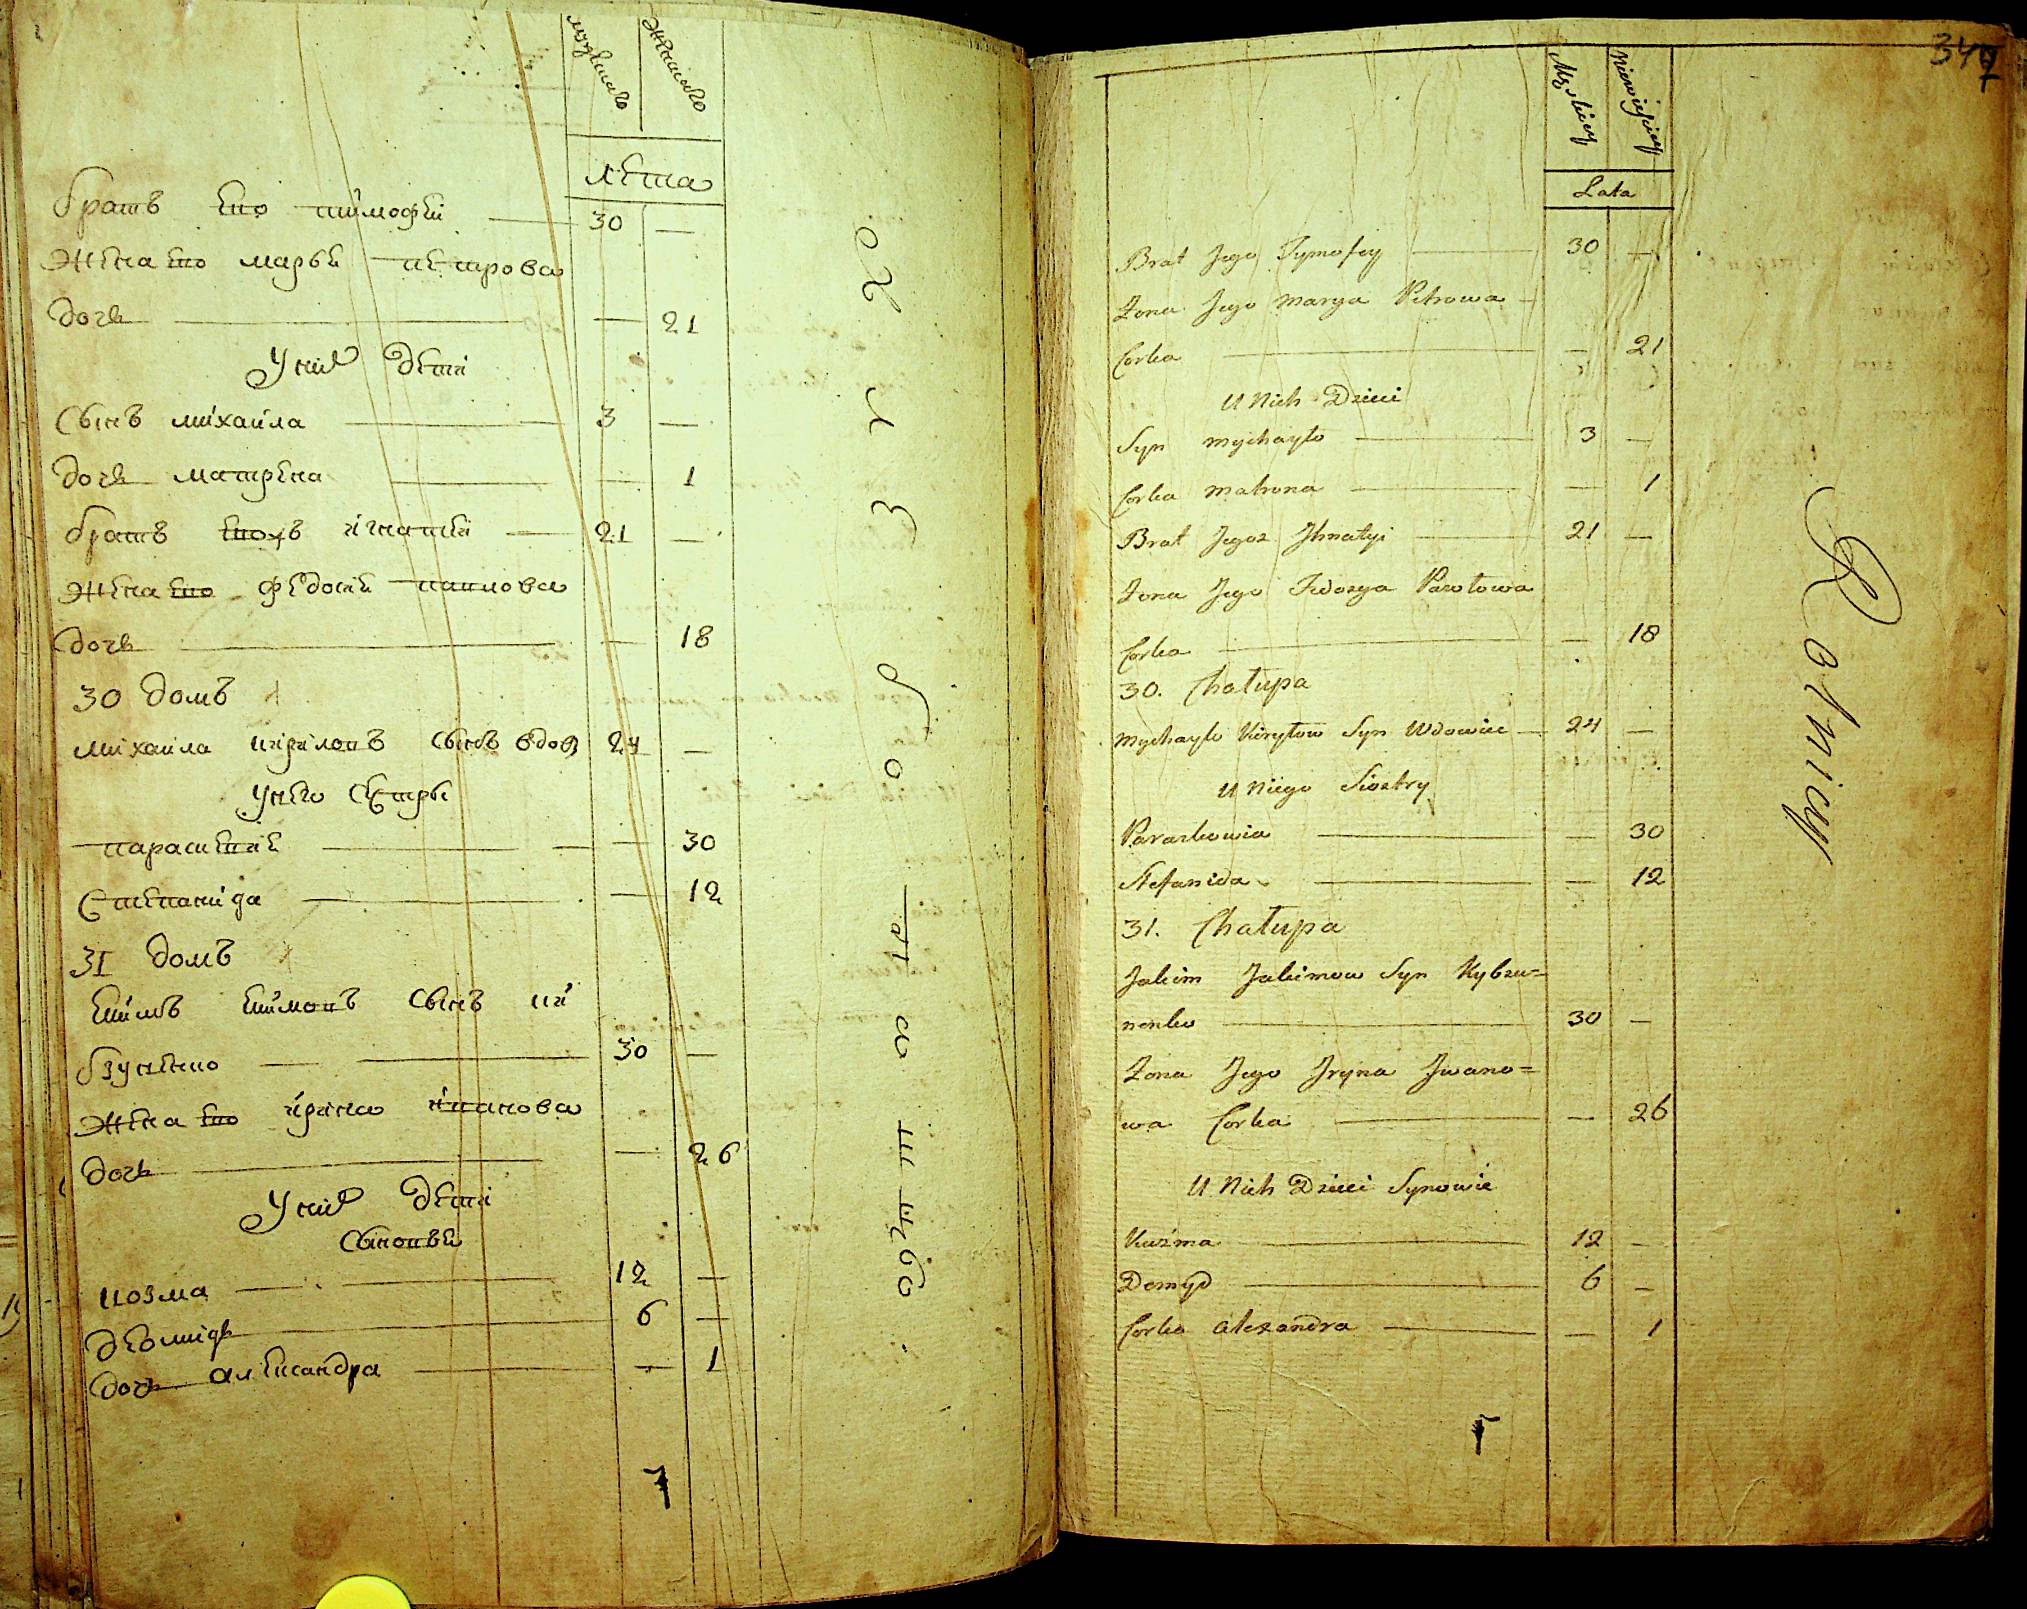 мужска
женска
Лета
братъ его тимофей 30 —
жена его марьѣ петрова
дочь — 21
У них Дети
Сынъ михайла 3 —
дочь матрена — 1
братъ ево ж игнатей 21 —
жена ево федосѣ павлова
дочь — 18
30 домъ
михаила кириловъ сынъ вдов 24 —
У него сестры
параскевия — 30
Степанида — 12
31 домъ
екимъ екимовъ сынъ ки
бзуненко 30 —
жена ево ирина иванова
дочь — 26
У них Дети
Сыновья
козма 12 —
деомидъ 6 —
дочь александра — 1
347
Męskiey
Niewieściey
Lata
Brat Jego Tymofiy 30 —
Żona Jego Marya Petrowa
Corka — 21
U Nich Dzieci
Syn Mychayło 3 —
Corka Matrona — 1
Brat Jegoż Jhnatyi 21 —
Żona Jego Fedosya Pawłowa
Corka — 18
30. Chałupa
Mychayło Kiryłow Syn Wdowiec 24 —
U Niego Siostry
Paraskowia — 30
Stefanida — 12
31. Chałupa
Jakim Jakimow Syn Kybzu=
nenko 30 —
Żona Jego Jryna Jwano=
wa Corka — 26
U Nich Dzieci Synowie
Kuźma 12 —
Demyd 6 —
Corka Alexandra — 1
Rolnicy